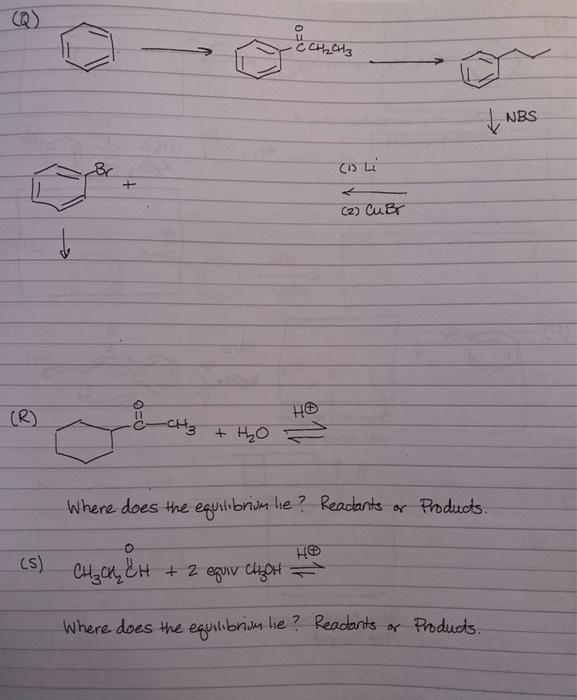 (Q)
O
C CH2CH3
NBS
Br
+
(1) Li
(2) CuBr
(R)
O
C—CH3 + H2O H⊕
Where does the equilibrium lie? Reactants or Products.
(S)
O
CH3CH2CH + 2 equiv CH3OH H⊕
Where does the equilibrium lie? Reactants or Products.